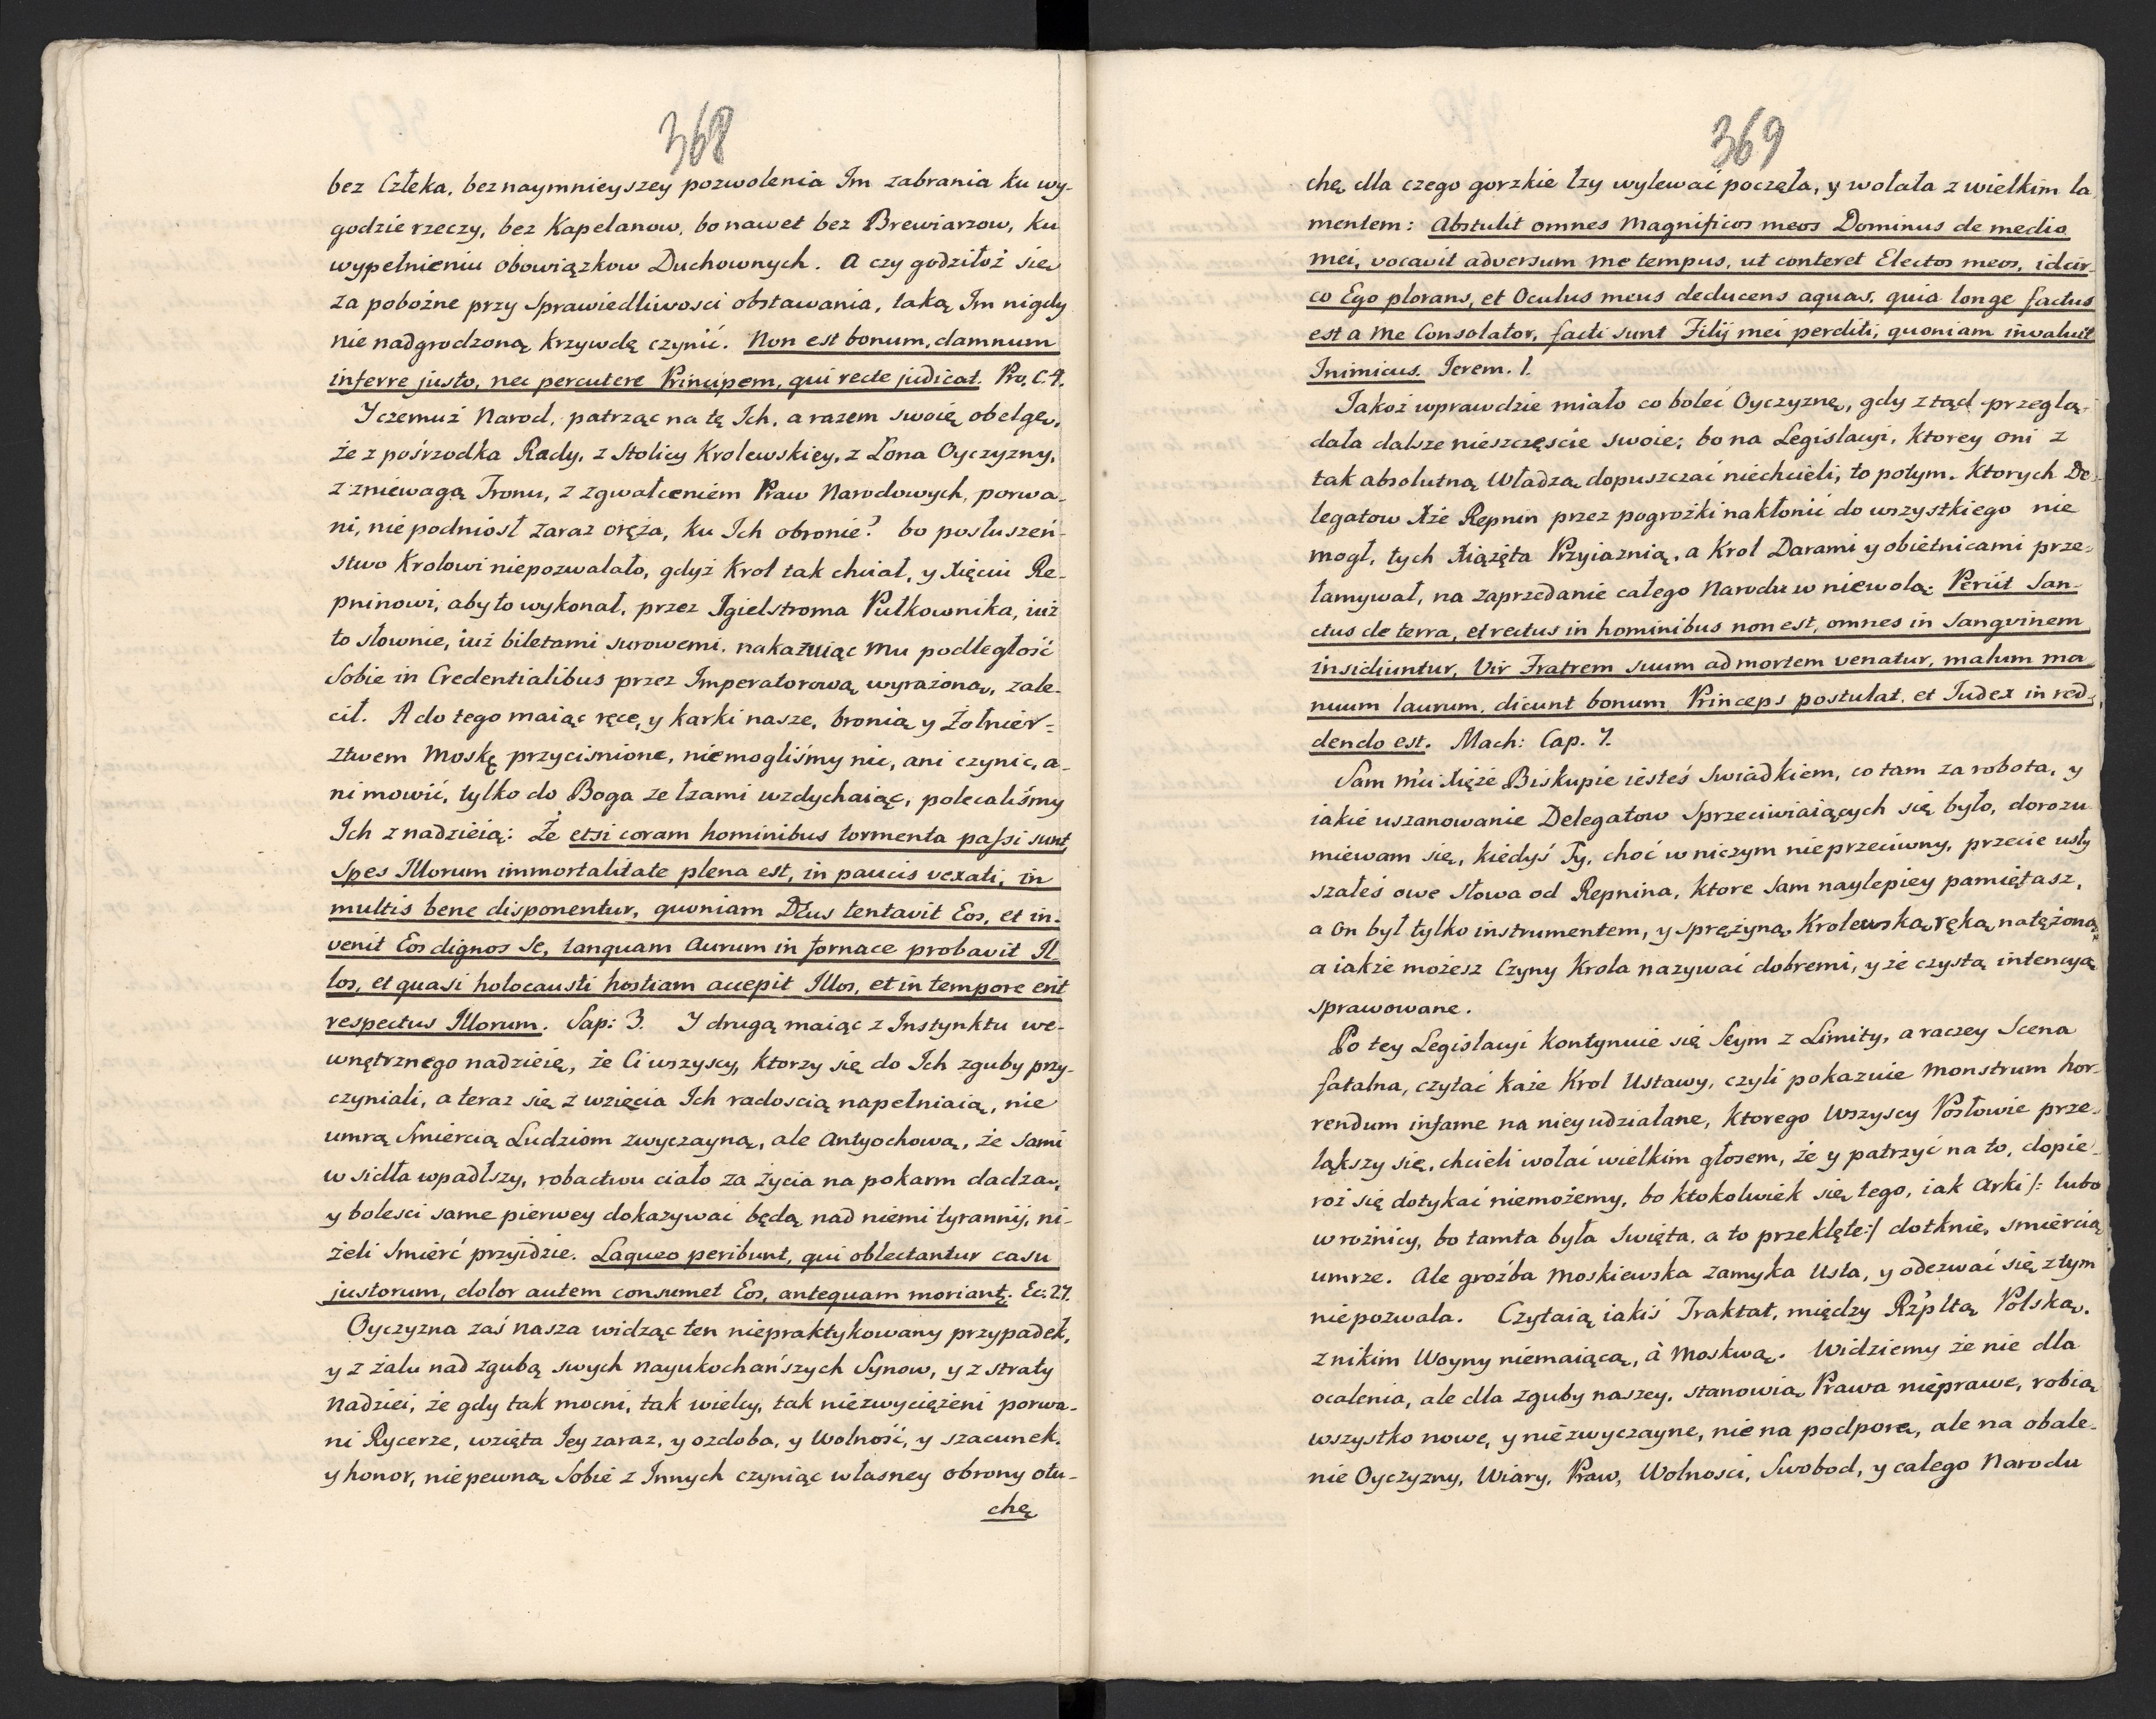 368
bez Człeka, bez naymnieyszey pozwolenia Im zabrania ku wy-
godzie rzeczy, bez Kapelanow, bo nawet bez Brewiarzow, ku
wypełnieniu obowiązkow Duchownych. A czy godziłoż się
za pobożne przy Sprawiedliwosci obstawania, taką Im nigdy
nie nadgrodzoną krzywdę czynić. Non est bonum, damnum
inferre justo, nec percutere Principem, qui recte judicat. Pro. C. 7.
Y czemuż Narod, patrząc na tę Ich, a razem swoię obelgę,
że z pośrzodka Rady, z Stolicy Krolewskiey, z Łona Oyczyzny,
z zniewagą Tronu, z zgwałceniem Praw Narodowych, porwa-
ni, nie podniosł zaraz oręża, ku Ich obronie? bo posłuszeń-
stwo Krolowi niepozwalało, gdyż Krol tak chciał, y Xięciu Re-
pninowi, aby to wykonał, przez Igielstroma Pułkownika, iuż
to słownie, iuż biletami surowemi, nakazuiąc Mu podległość
Sobie in Credentialibus przez Imperatorową wyrażoną, zale-
cił. A do tego maiąc ręce, y karki nasze, bronią y Żołnier-
ztwem Moskę przycisnione, niemogliśmy nic, ani czynic, a-
ni mowić, tylko do Boga ze łzami wzdychaiąc, polecaliśmy
Ich z nadzieią: Że etsi coram hominibus tormenta passi sunt,
Spes Illorum immortalitate plena est, in paucis vexati, in
multis bene disponentur, quoniam Deus tentavit Eos, et in-
venit Eos dignos Se, tanquam Aurum in fornace probavit Il-
los, et quasi holocausti hostiam accepit Illos, et in tempore erit
respectus Illorum. Sap: 3. Y drugą maiąc z Instynktu we-
wnętrznego nadzieię, że Ci wszyscy, ktorzy się do Ich zguby przy-
czyniali, a teraz się z wzięcia Ich radoscią napełniaią, nie
umrą Smiercią Ludziom zwyczayną, ale Antyochową, że Sami
w sidła wpadłszy, robactwu ciało za życia na pokarm dadzą,
y bolesci same pierwey dokazywać będą nad niemi tyrannij, ni-
żeli Smierć przyidzie. Laqueo peribunt, qui oblectantur casu
justorum, dolor autem consumet Eos, antequam moriant. Ec. 27.
Oyczyzna zaś nasza widząc ten niepraktykowany przypadek,
y z żalu nad zgubą swych nayukochańszych Synow, y z straty
Nadziei, że gdy tak mocni, tak wielcy, tak niezwyciężeni porwa-
ni Rycerze, wzięta Iey zaraz, y ozdoba, y Wolność, y szacunek,
y honor, niepewną Sobie z Innych czyniąc własney obrony otu-
chę
369
chę, dla czego gorzkie łzy wylewać poczęła, y wołała z wielkim la
mentem: Abstulit omnes Magnificos meos Dominus de medio
mei, vocavit adversum me tempus, ut conteret Electos meos, idcir-
co Ego plorans, et Oculus meus deducens aquas, quia longe factus
est a Me Consolator, facti sunt Filij mei perditi, quoniam invaluit
Inimicus. Ierem. 1.
Jakoż wprawdzie miało co boleć Oyczyznę, gdy z tąd przeglą-
dała dalsze nieszczęscie swoie; bo na Legislacyi, ktorey oni z
tak absolutną Władzą dopuszczać niechcieli, to potym. Ktorych De-
legatow Xże Repnin przez pogrożki nakłonić do wszystkiego nie
mogł, tych Xiążęta Przyiaznią, a Krol Darami y obietnicami prze-
łamywał, na zaprzedanie całego Narodu w niewolą. Periit San-
ctus de terra, et rectus in hominibus non est, omnes in Sangvinem
insidiuntur, Vir Fratrem suum ad mortem venatur, malum ma
nuum laurum, dicunt bonum Princeps postulat, et Iudex in red-
dendo est. Mach: Cap. 7.
Sam Mci Xięże Biskupie iesteś Swiadkiem, co tam za robota, y
iakie uszanowanie Delegatow Sprzeciwiaiących się było, dorozu
miewam się, kiedyś Ty, choć w niczym nieprzeciwny, przecie usły
szałeś owe słowa od Repnina, ktore Sam naylepiey pamiętasz,
a On był tylko instrumentem, y sprężyną Krolewską ręką natężoną,
a iakże możesz Czyny Krola nazywać dobremi, y że czystą intencyą
sprawowane.
Po tey Legislacyi kontynuie się Seym z Limity, a raczey Scena
fatalna, czytać każe Krol Ustawy, czyli pokazuie Monstrum hor-
rendum infame na niey udziałane, ktorego Wszyscy Posłowie prze-
ląkszy się, chcieli wołać wielkim głosem, że y patrzyć na to, dopie-
roż się dotykać niemożemy, bo ktokolwiek się tego, iak Arki /: lubo
w rożnicy, bo tamta była Swięta, a to przeklęte :/ dotknie, smiercią
umrze. Ale groźba Moskiewska zamyka Usta, y odezwać się z tym
niepozwala. Czytaią iakiś Traktat, między Rzpltą Polską.
z nikim Woyny niemaiącą, à Moskwą. Widziemy że nie dla
ocalenia, ale dla zguby naszey, stanowią Prawa nieprawe, robią
wszystko nowe, y niezwyczayne, nie na podporę, ale na obale-
nie Oyczyzny, Wiary, Praw, Wolnosci, Swobod, y całego Narodu